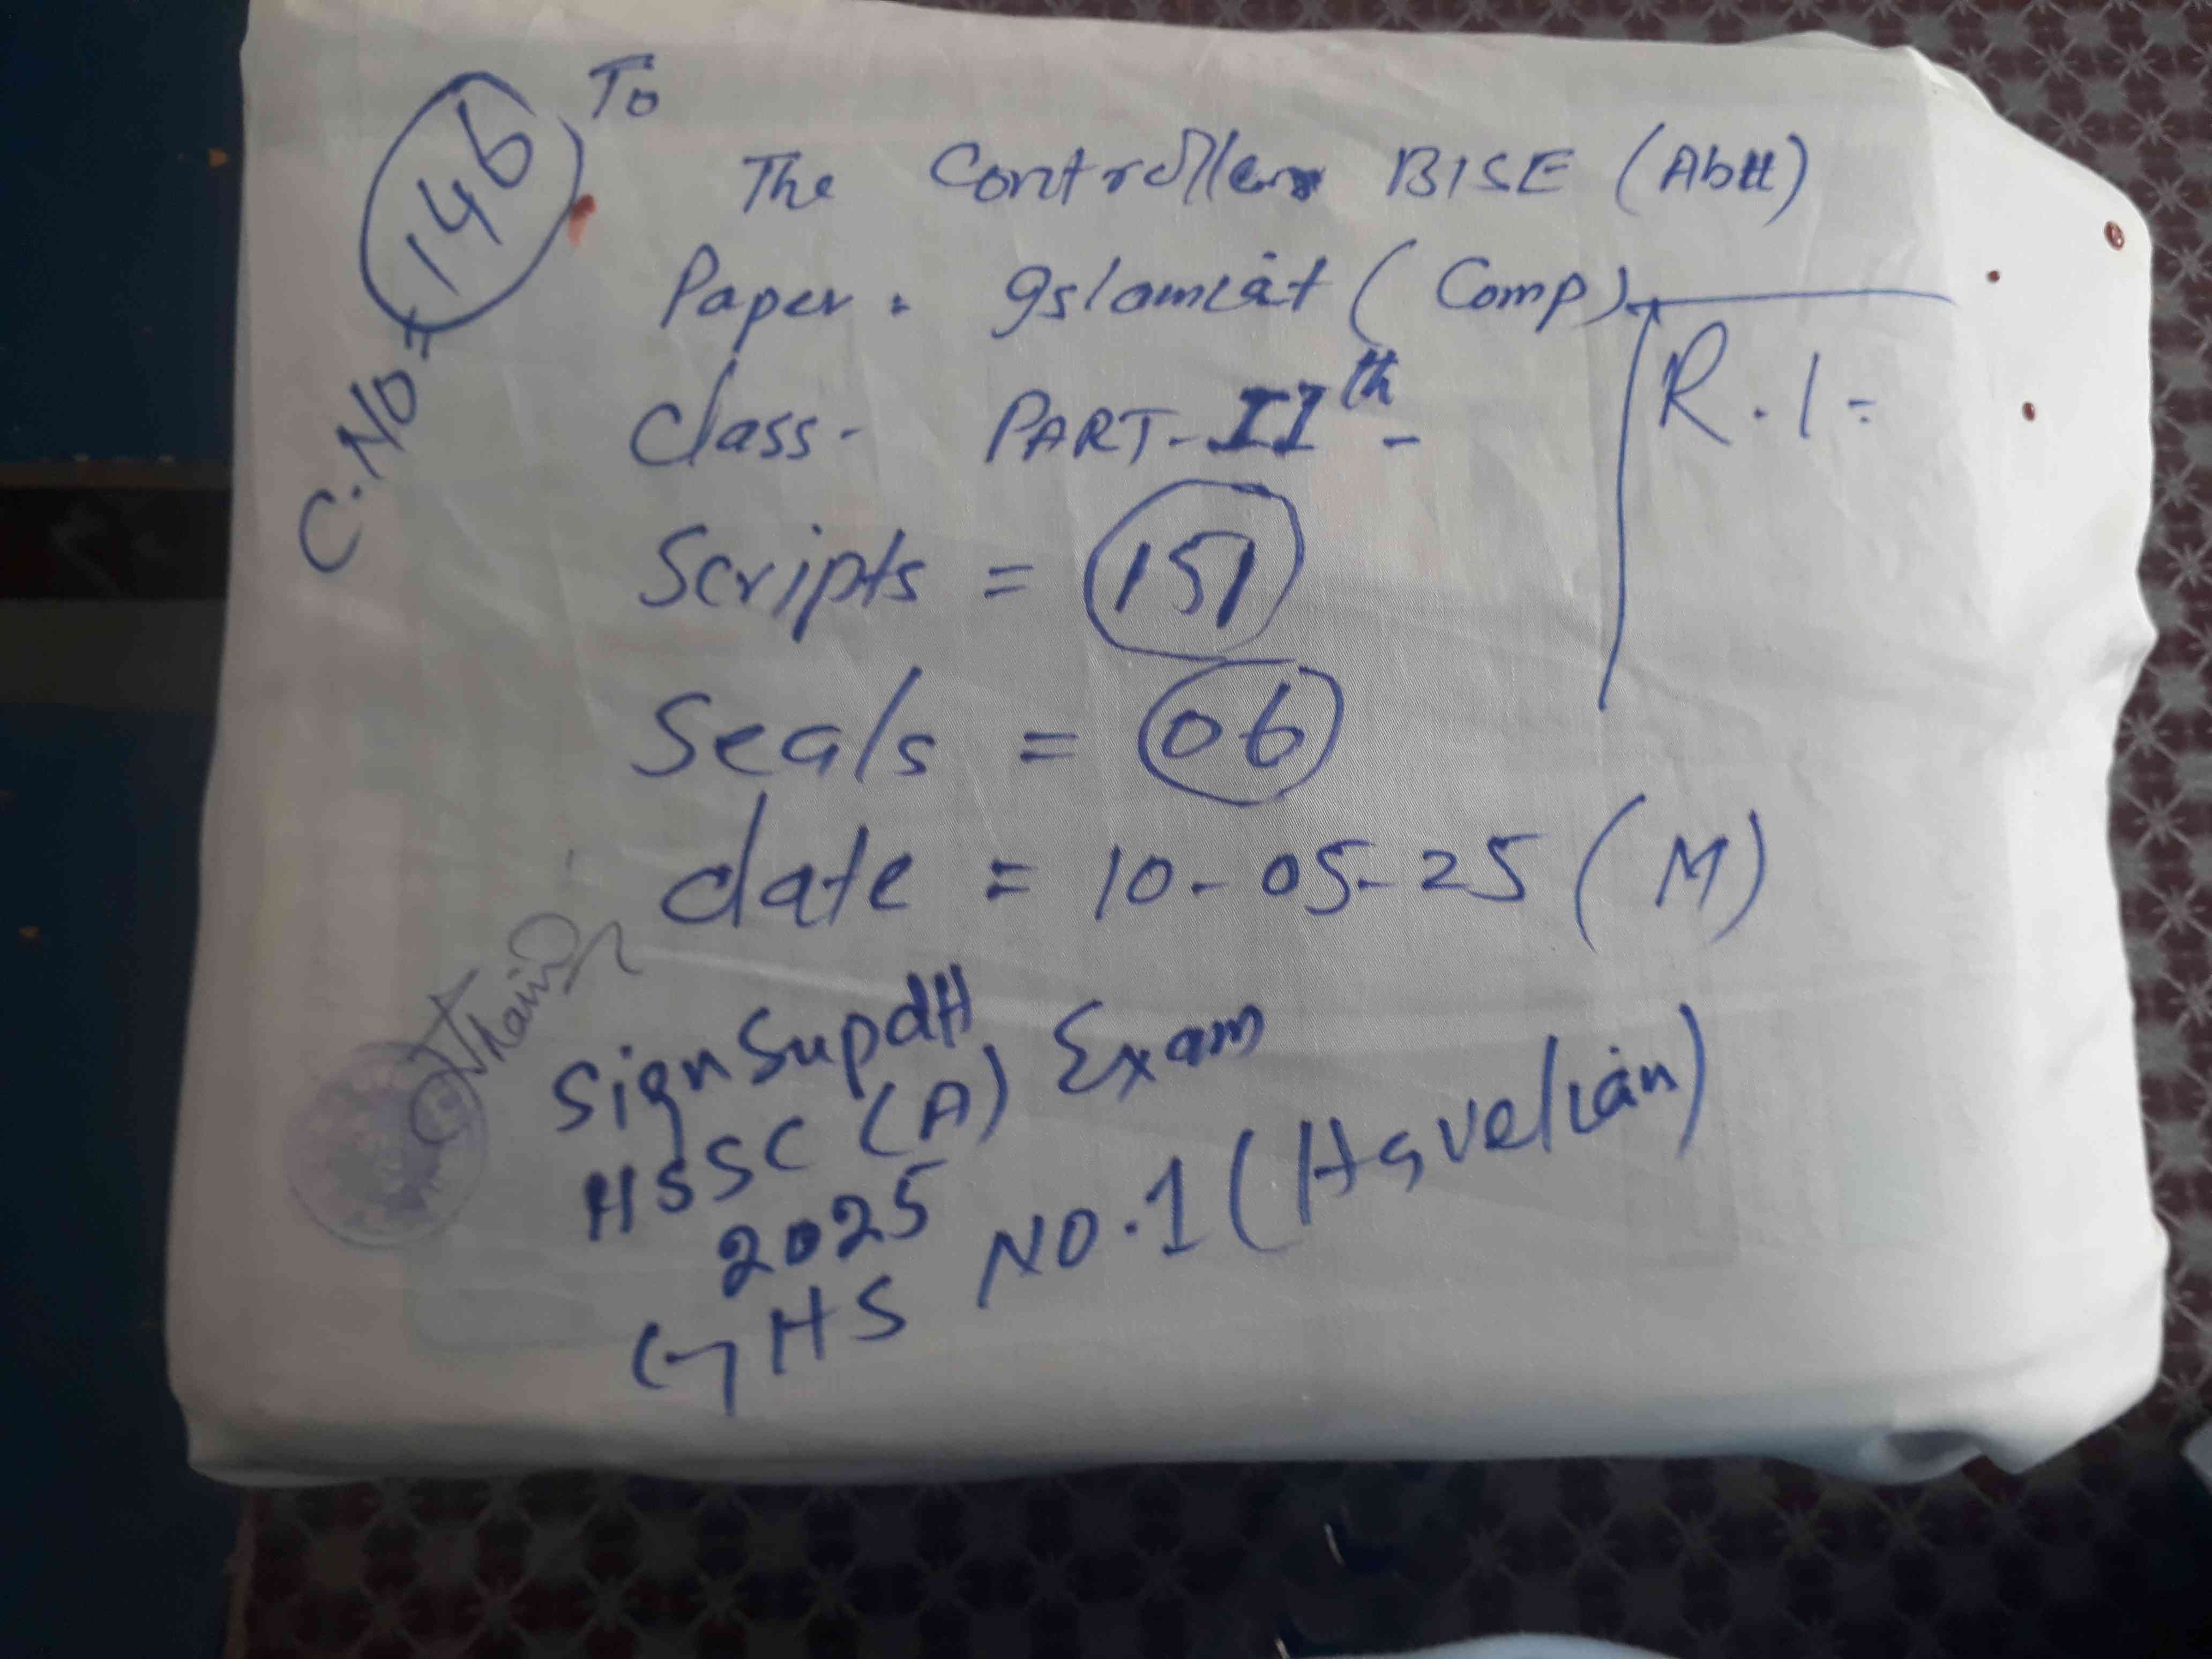 C.No = 146
To
The Controller BISE (Abtt)
Paper = Islamiat (Comp)
R.1 =
Class - PART-IIth -
Scripts = 151
Seals = 06
date = 10-05-25 (M)
Sign Supdtt
HSSC (A) Exam
2025
GHS NO.1 (Havelian)